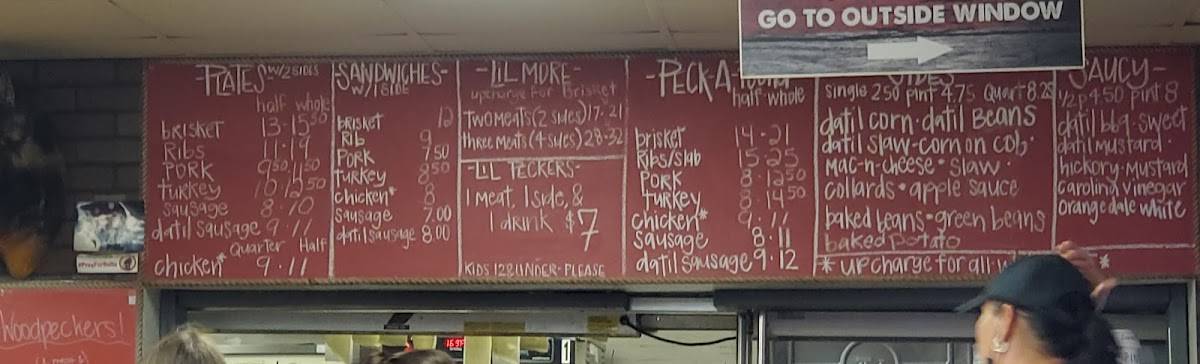 GO TO OUTSIDE WINDOW
PLATES W/2 SIDES
half whole
brisket 13-15⁵⁰
Ribs 11-19
PORK 9⁵⁰-11⁵⁰
turkey 10-12⁵⁰
sausage 8-10
datil sausage 9-11
Quarter Half
chicken* 9-11
-SANDWICHES-
W/1 SIDE
brisket 12
Rib 9
Pork 7⁵⁰
turkey 8⁵⁰
chicken* 8
Sausage 7.00
datil sausage 8.00
-LIL MORE-
upcharge For Brisket
TWO Meats (2 sides) 17-21
three meats (4 sides) 28-32
-LIL PECKERS-
1 meat, 1 side, &
1 drink $7
KIDS 12 & UNDER-PLEASE
-PECK-A-
half whole
brisket 14-21
Ribs/slab 15-25
PORK 8-12⁵⁰
turkey 8-14⁵⁰
chicken* 9-11
Sausage 8-11
datil sausage 9-12
SIDES
Single 2.50 pint 4.75 Quart 8.25
datil corn·datil Beans
datil slaw·corn on cob·
Mac-n-cheese·Slaw·
collards·apple sauce
baked beans·green beans
baked potato
* upcharge for all
SAUCY-
1/2 p 4.50 pint 8
datil bbq·sweet
datil mustard·
hickory·Mustard
carolina vinegar
Orangedale White
#PrayForBuffa
Woodpeckers!
1